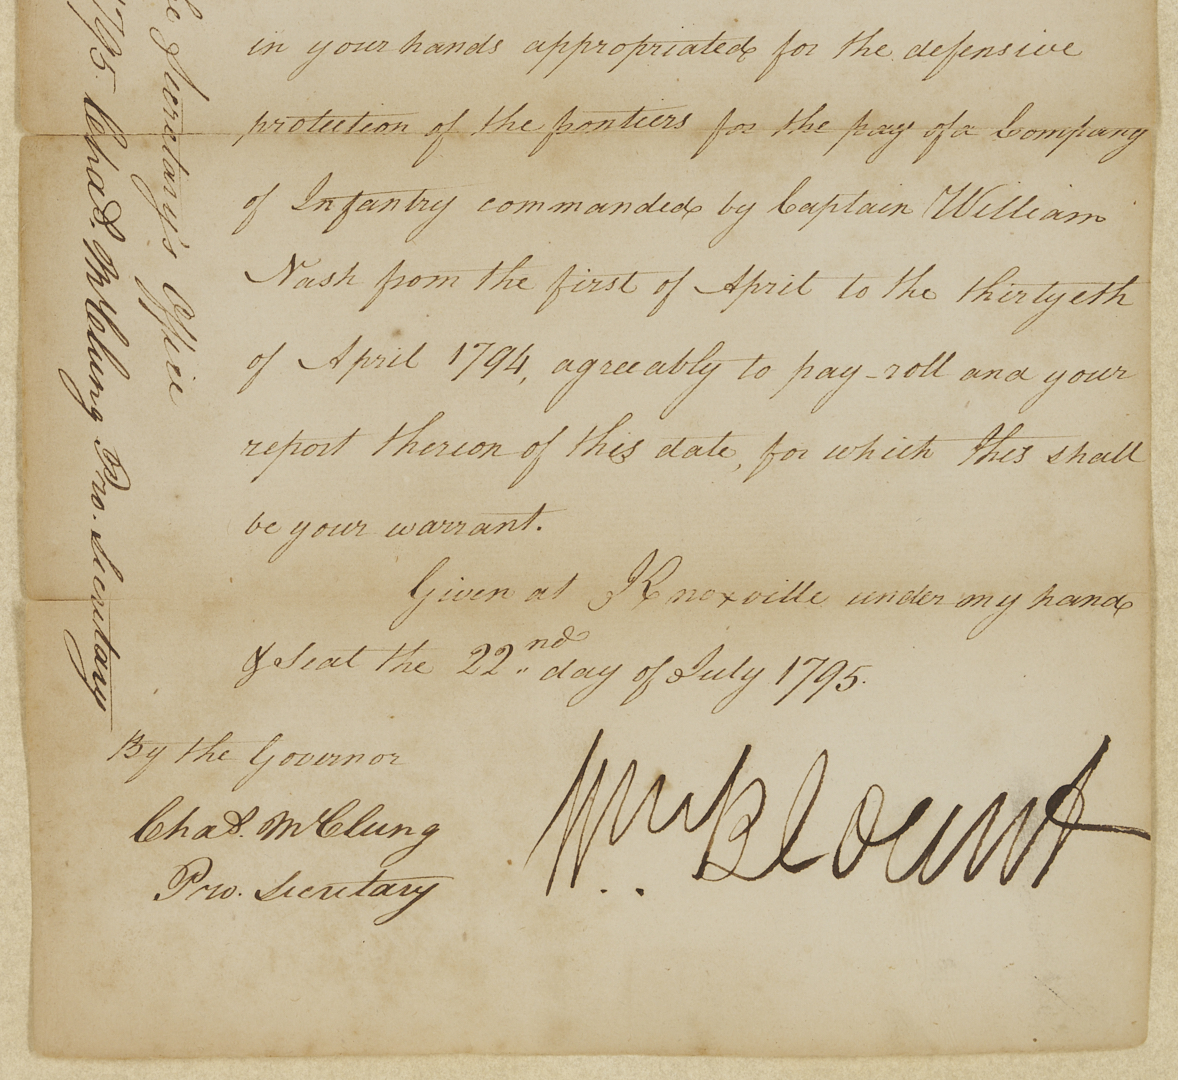 in your hands appropriated for the defensive
protection of the frontiers for the pay of a Company
of Infantry commanded by Captain William
Nash from the first of April to the thirtyeth
of April 1794, agreeably to pay-roll and your
report thereon of this date, for which this shall
be your warrant.
Given at Knoxville under my hand
& seal the 22nd day of July 1795.
By the Governor
Chas. McClung
Pro. Secretary
Wm Blount
Secretary's Office
1795. Chas. McClung Pro. Secretary